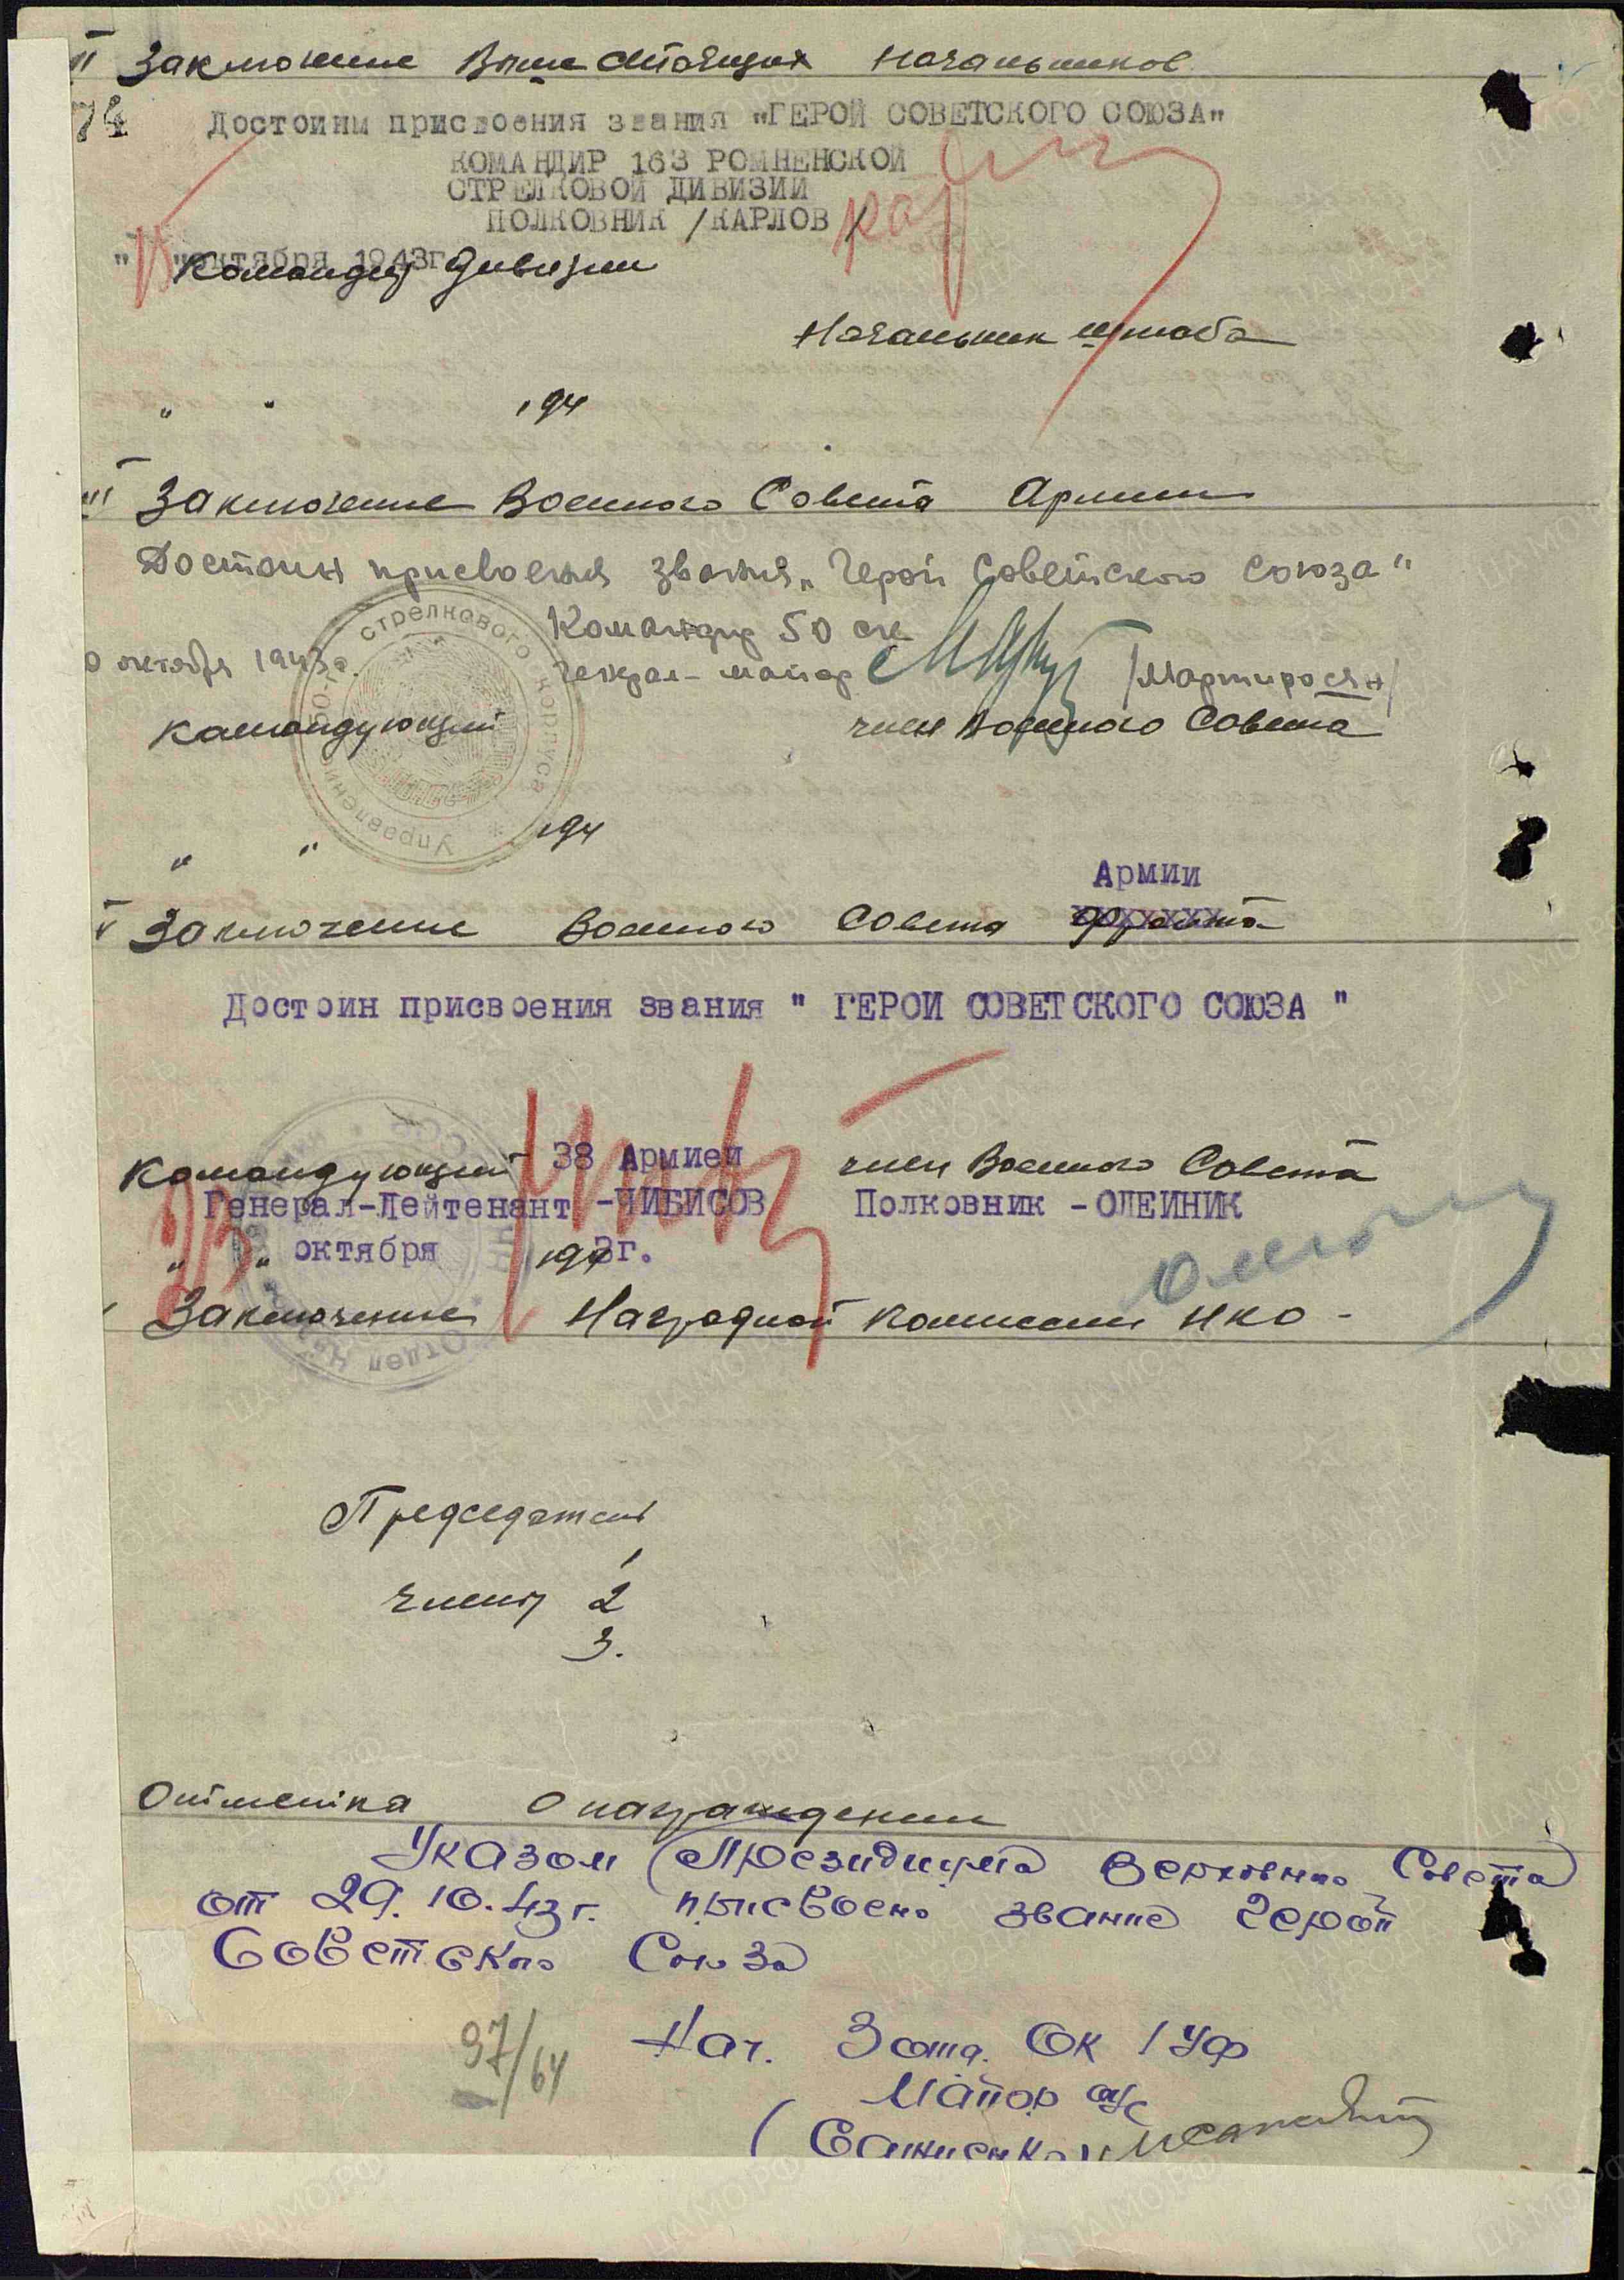 II Заключение Вышестоящих Начальников
74 Достоины присвоения звания "ГЕРОЙ СОВЕТСКОГО СОЮЗА"
КОМАНДИР 163 РОМНЕНСКОЙ
СТРЕЛКОВОЙ ДИВИЗИИ
ПОЛКОВНИК /КАРЛОВ/
" " октября 1943г
Командир дивизии
Начальник штаба
" " 194
III Заключение Военного Совета Армии
Достоин присвоения звания „Герой Советского Союза"
Командир 50 ск
октября 1943г. Генерал-майор /Мартиросян/
Командующий член Военного Совета
Управление 50-го стрелкового корпуса
" " 194
Армии
V Заключение Военного Совета фронта
Достоин присвоения звания " ГЕРОИ СОВЕТСКОГО СОЮЗА "
Командующий 38 Армией член Военного Совета
Генерал-Лейтенант -ЧИБИСОВ Полковник -ОЛЕЙНИК
" " октября 1943г.
Заключение Наградной Комиссии НКО -
Председатель
1
Члены 2
3.
Отметка о награждении
Указом Президиума Верховного Совета
от 29.10.43г. присвоено звание Герой
Советского Союза
97/64 Нач. 3 отд. ОК 1 УФ
Майор а/с